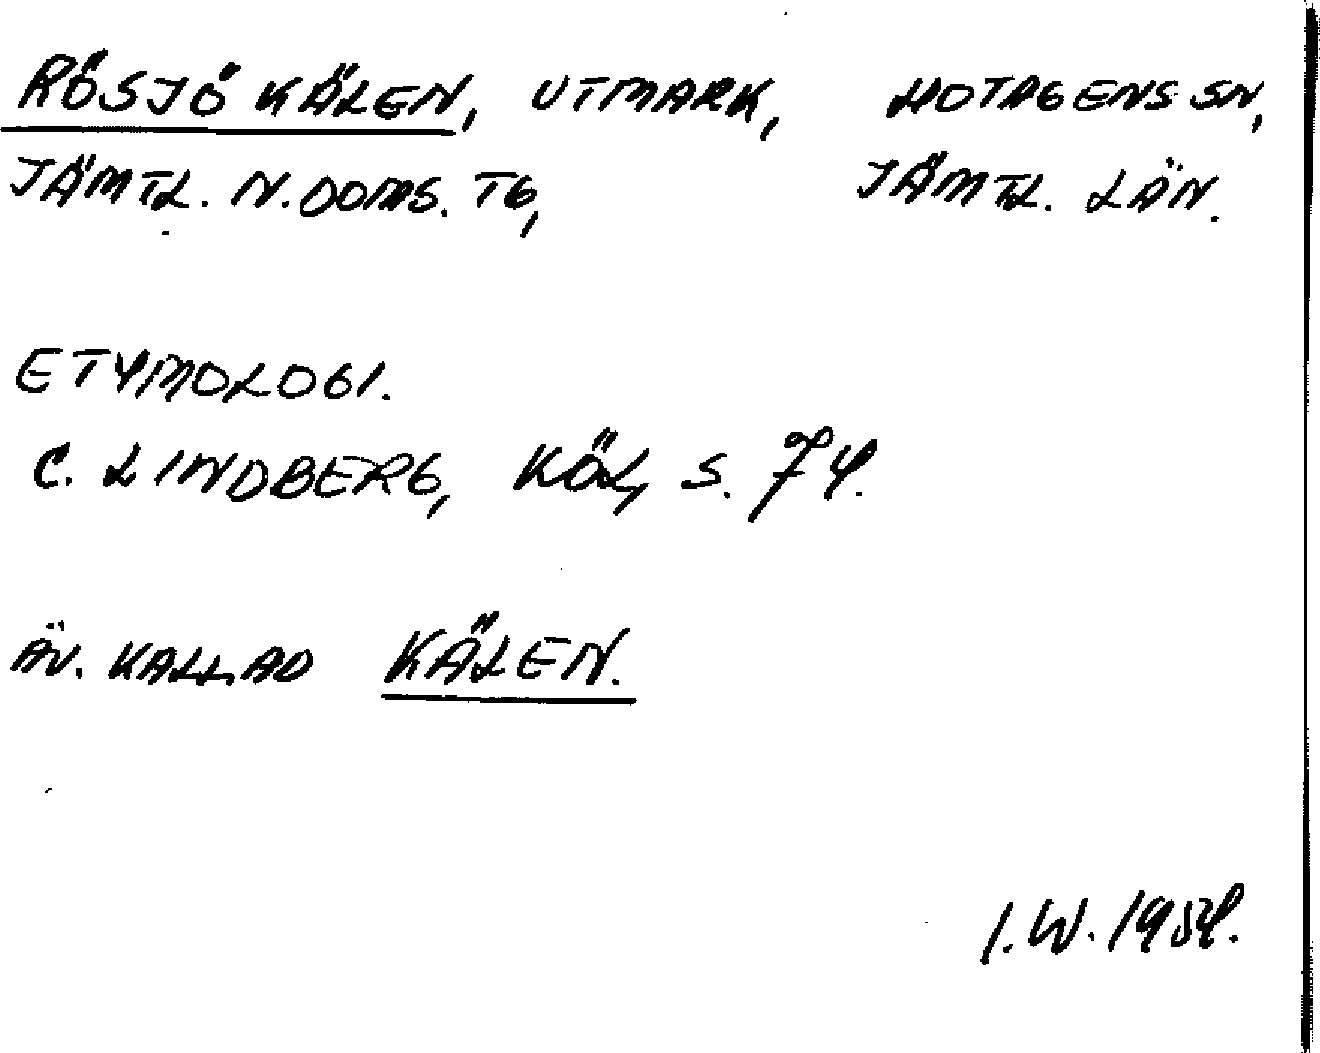 RÖSJÖKÄLEN, UTMARK, HOTAGENS SN,
JÄMTL. N. DOMS. TG, JÄMTL. LÄN.
ETYMOLOGI.
C. LINDBERG, KÖL, S. 74.
ÄV. KALLAD KÄLEN.
I. W. 1954.